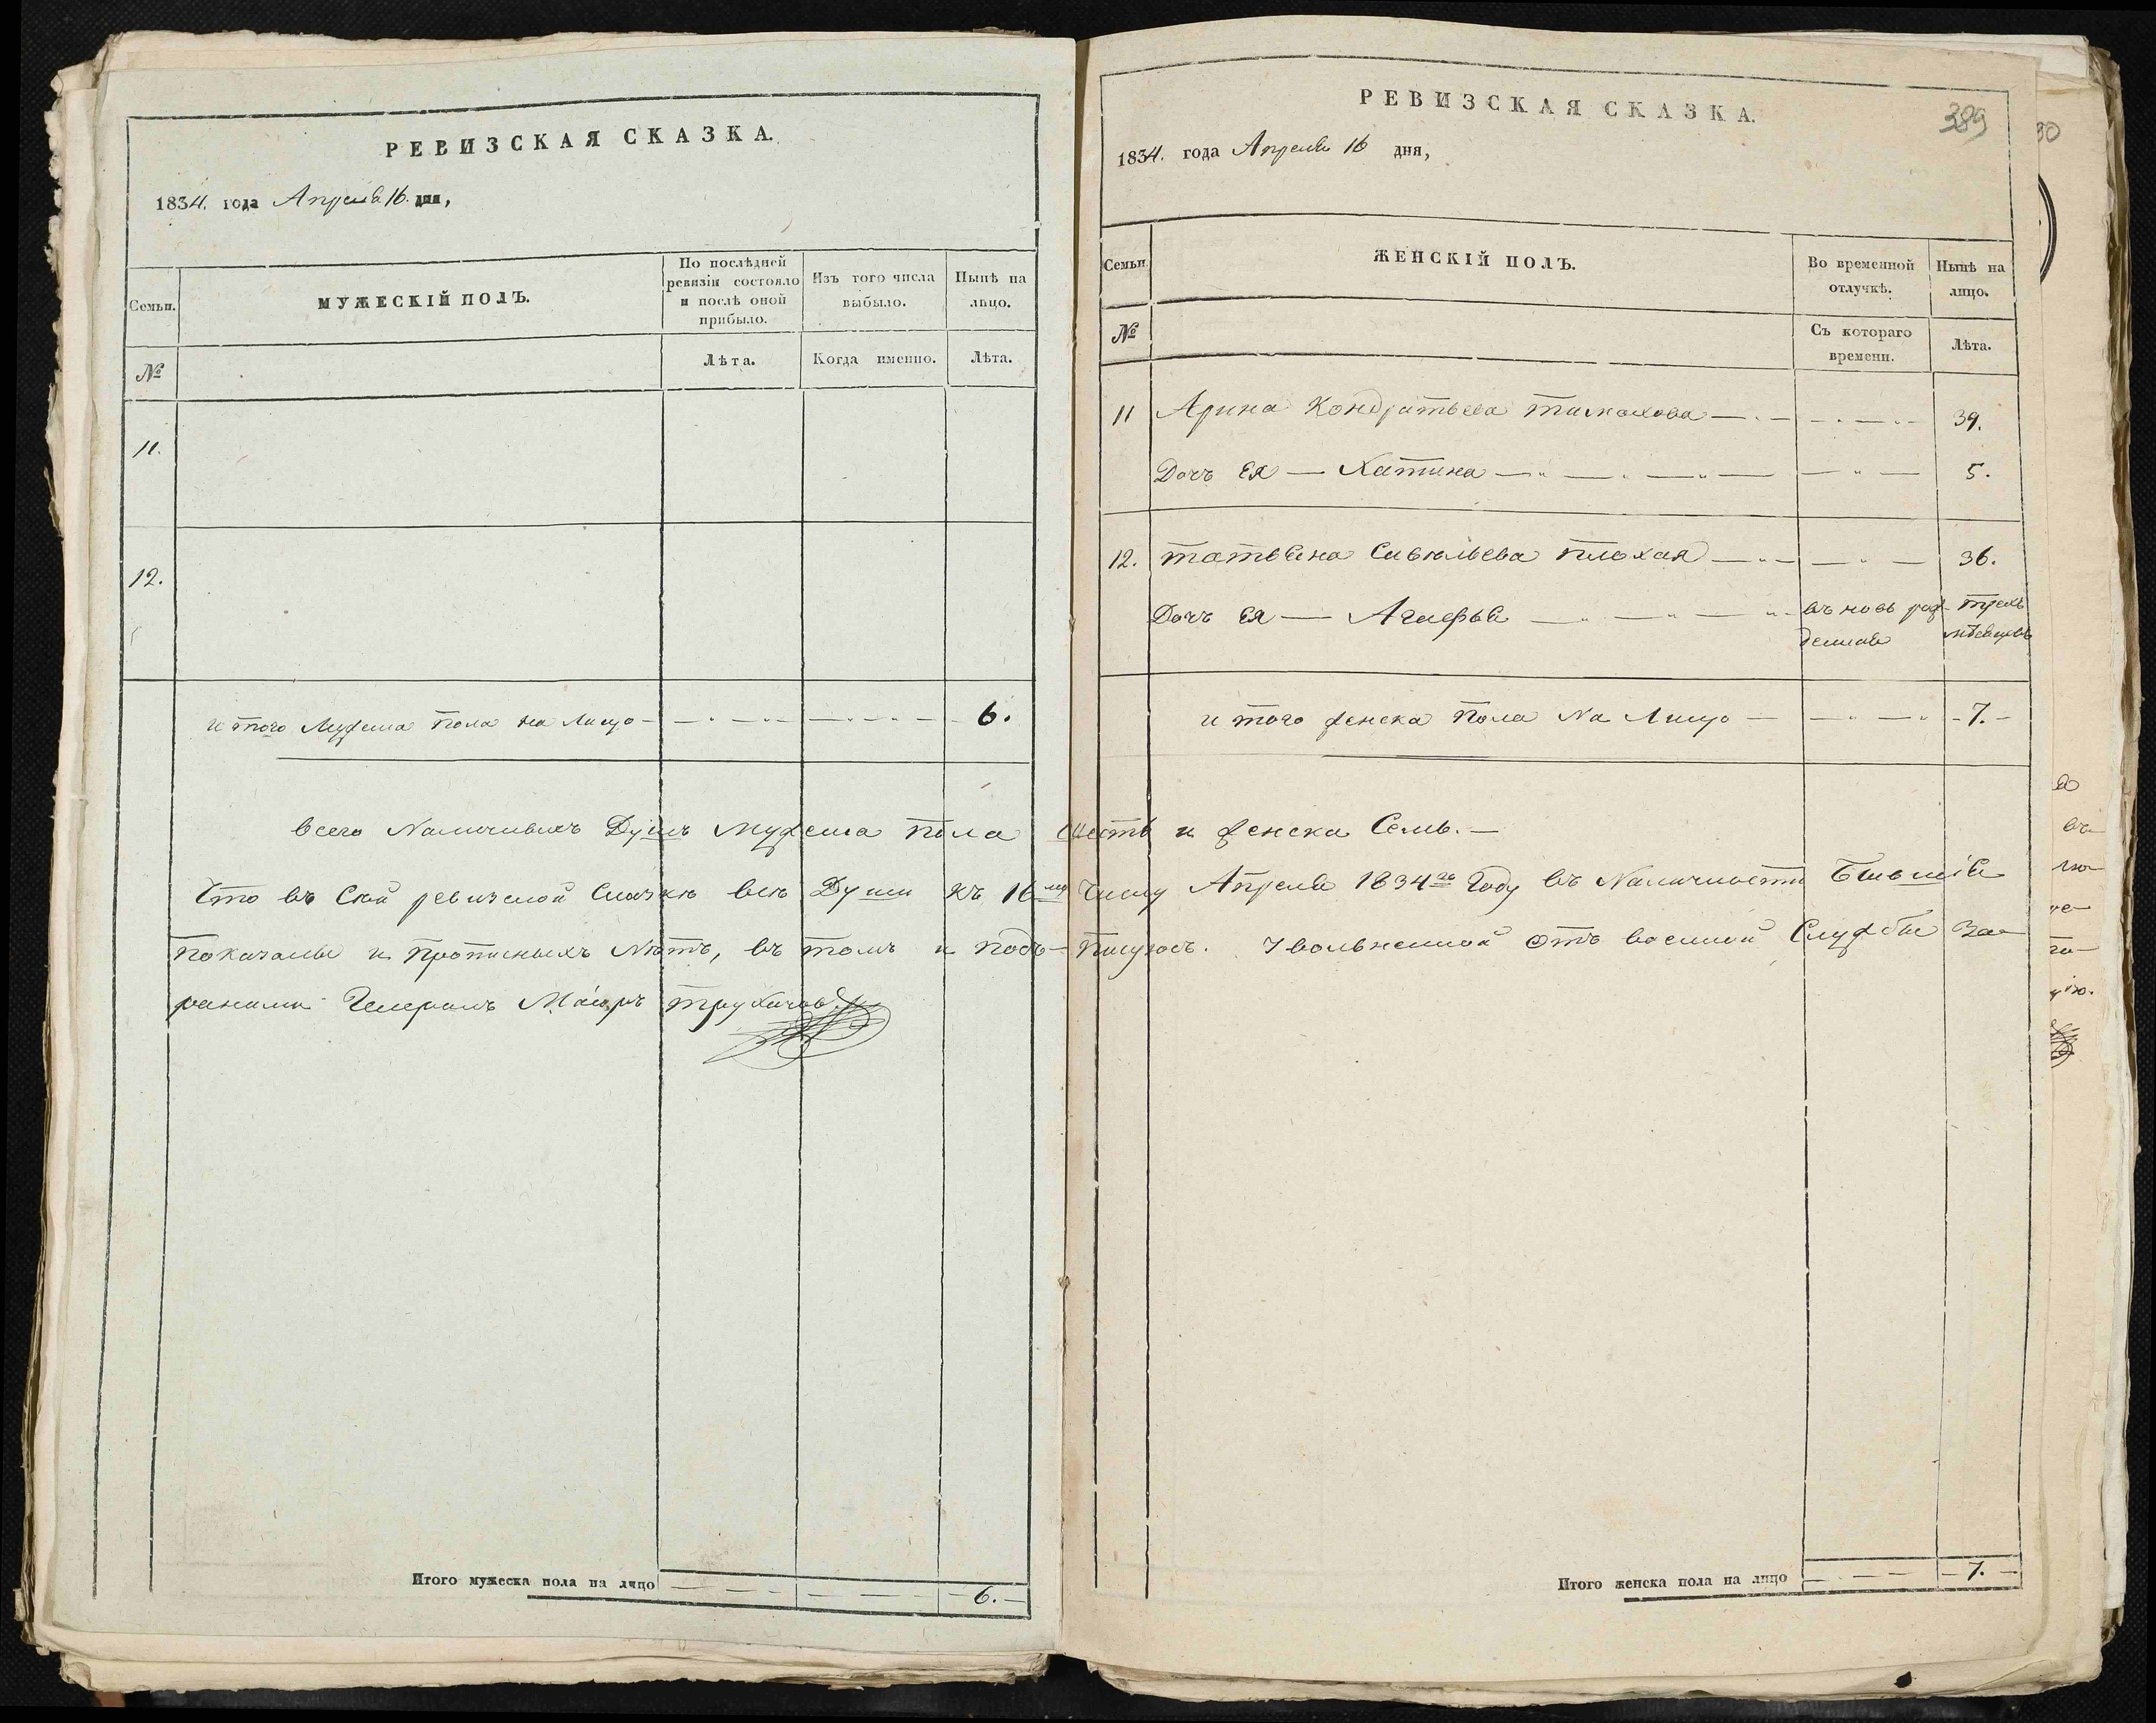 РЕВИЗСКАЯ СКАЗКА.
1834. года Апреля 16. дня,
Семьи.
МУЖЕСКІЙ ПОЛЪ.
По послѣдней ревизіи состояло и послѣ оной прибыло.
Изъ того числа выбыло.
Нынѣ на лицо.
№
Лѣта.
Когда именно.
Лѣта.
11.
12.
и того Мужеска пола на Лицо - 6.
Итого мужеска пола на лицо 6.
РЕВИЗСКАЯ СКАЗКА.
389
1834. года Апреля 16 дня,
Семьи
ЖЕНСКІЙ ПОЛЪ.
Во временной отлучкѣ.
Нынѣ на лицо.
№
Съ котораго времени.
Лѣта.
11 Арина Кондратьева 39.
Дочь Ея — 5.
12. татьяна Савельева плохая 36.
Дочь Ея — Агафья въ новь рож- трехъ
денная мѣсяцовъ
и того женска пола На Лицо — 7.
всего Наличныхъ Душъ мужеска пола шесть и женска Семь. —
Что въ Сей ревизской Сказке все Души къ 16му Числу Апреля 1834го Году въ Наличности Бывшія
показаны и прописныхъ Нѣтъ, въ томъ и подъ- писуюсь. Увольненной отъ военной Службы За
ранами Генералъ Маіоръ трухачов
Итого женска пола на лицо 7.